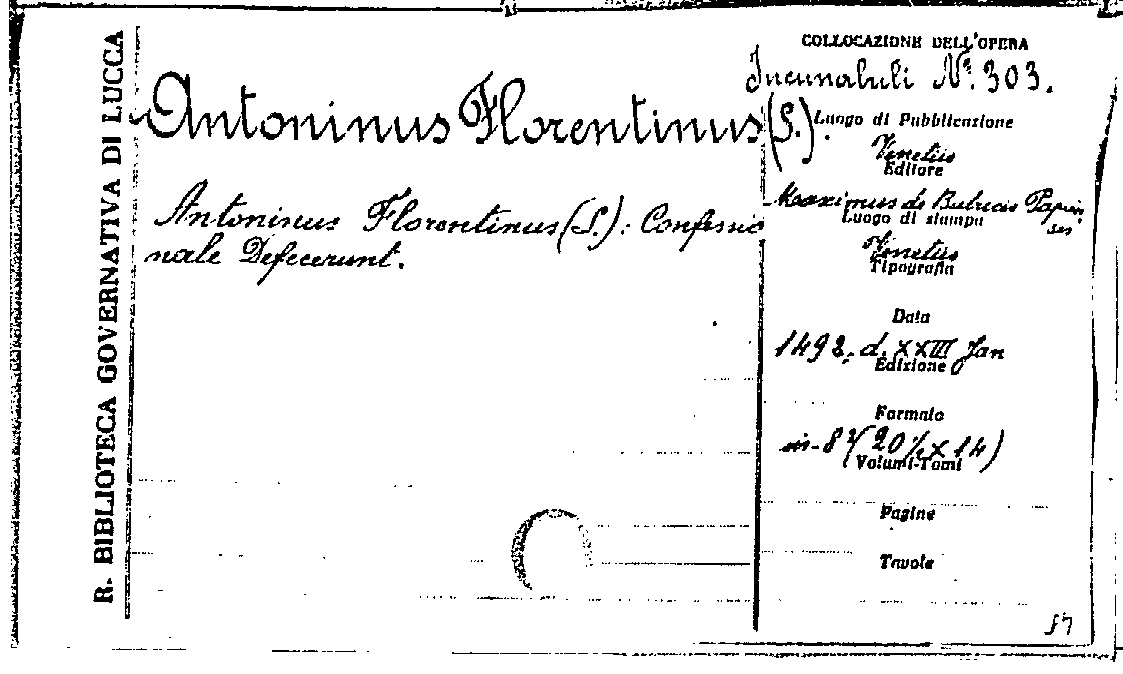 R. BIBLIOTECA GOVERNATIVA DI LUCCA
Antoninus Florentinus (S.).
Antoninus Florentinus (S.): Confessio
nale Defecerunt.
COLLOCAZIONE DELL'OPERA
Incunabuli Nº. 303.
Luogo di Pubblicazione
Venetiis
Editore
Maximus de Butricis Papien
sis
Luogo di stampa
Venetiis
Tipografia
Data
1492, d. XXIII Jan
Edizione
Formato
in-8º (20½ x 14)
Volumi-Tomi
Pagine
Tavole